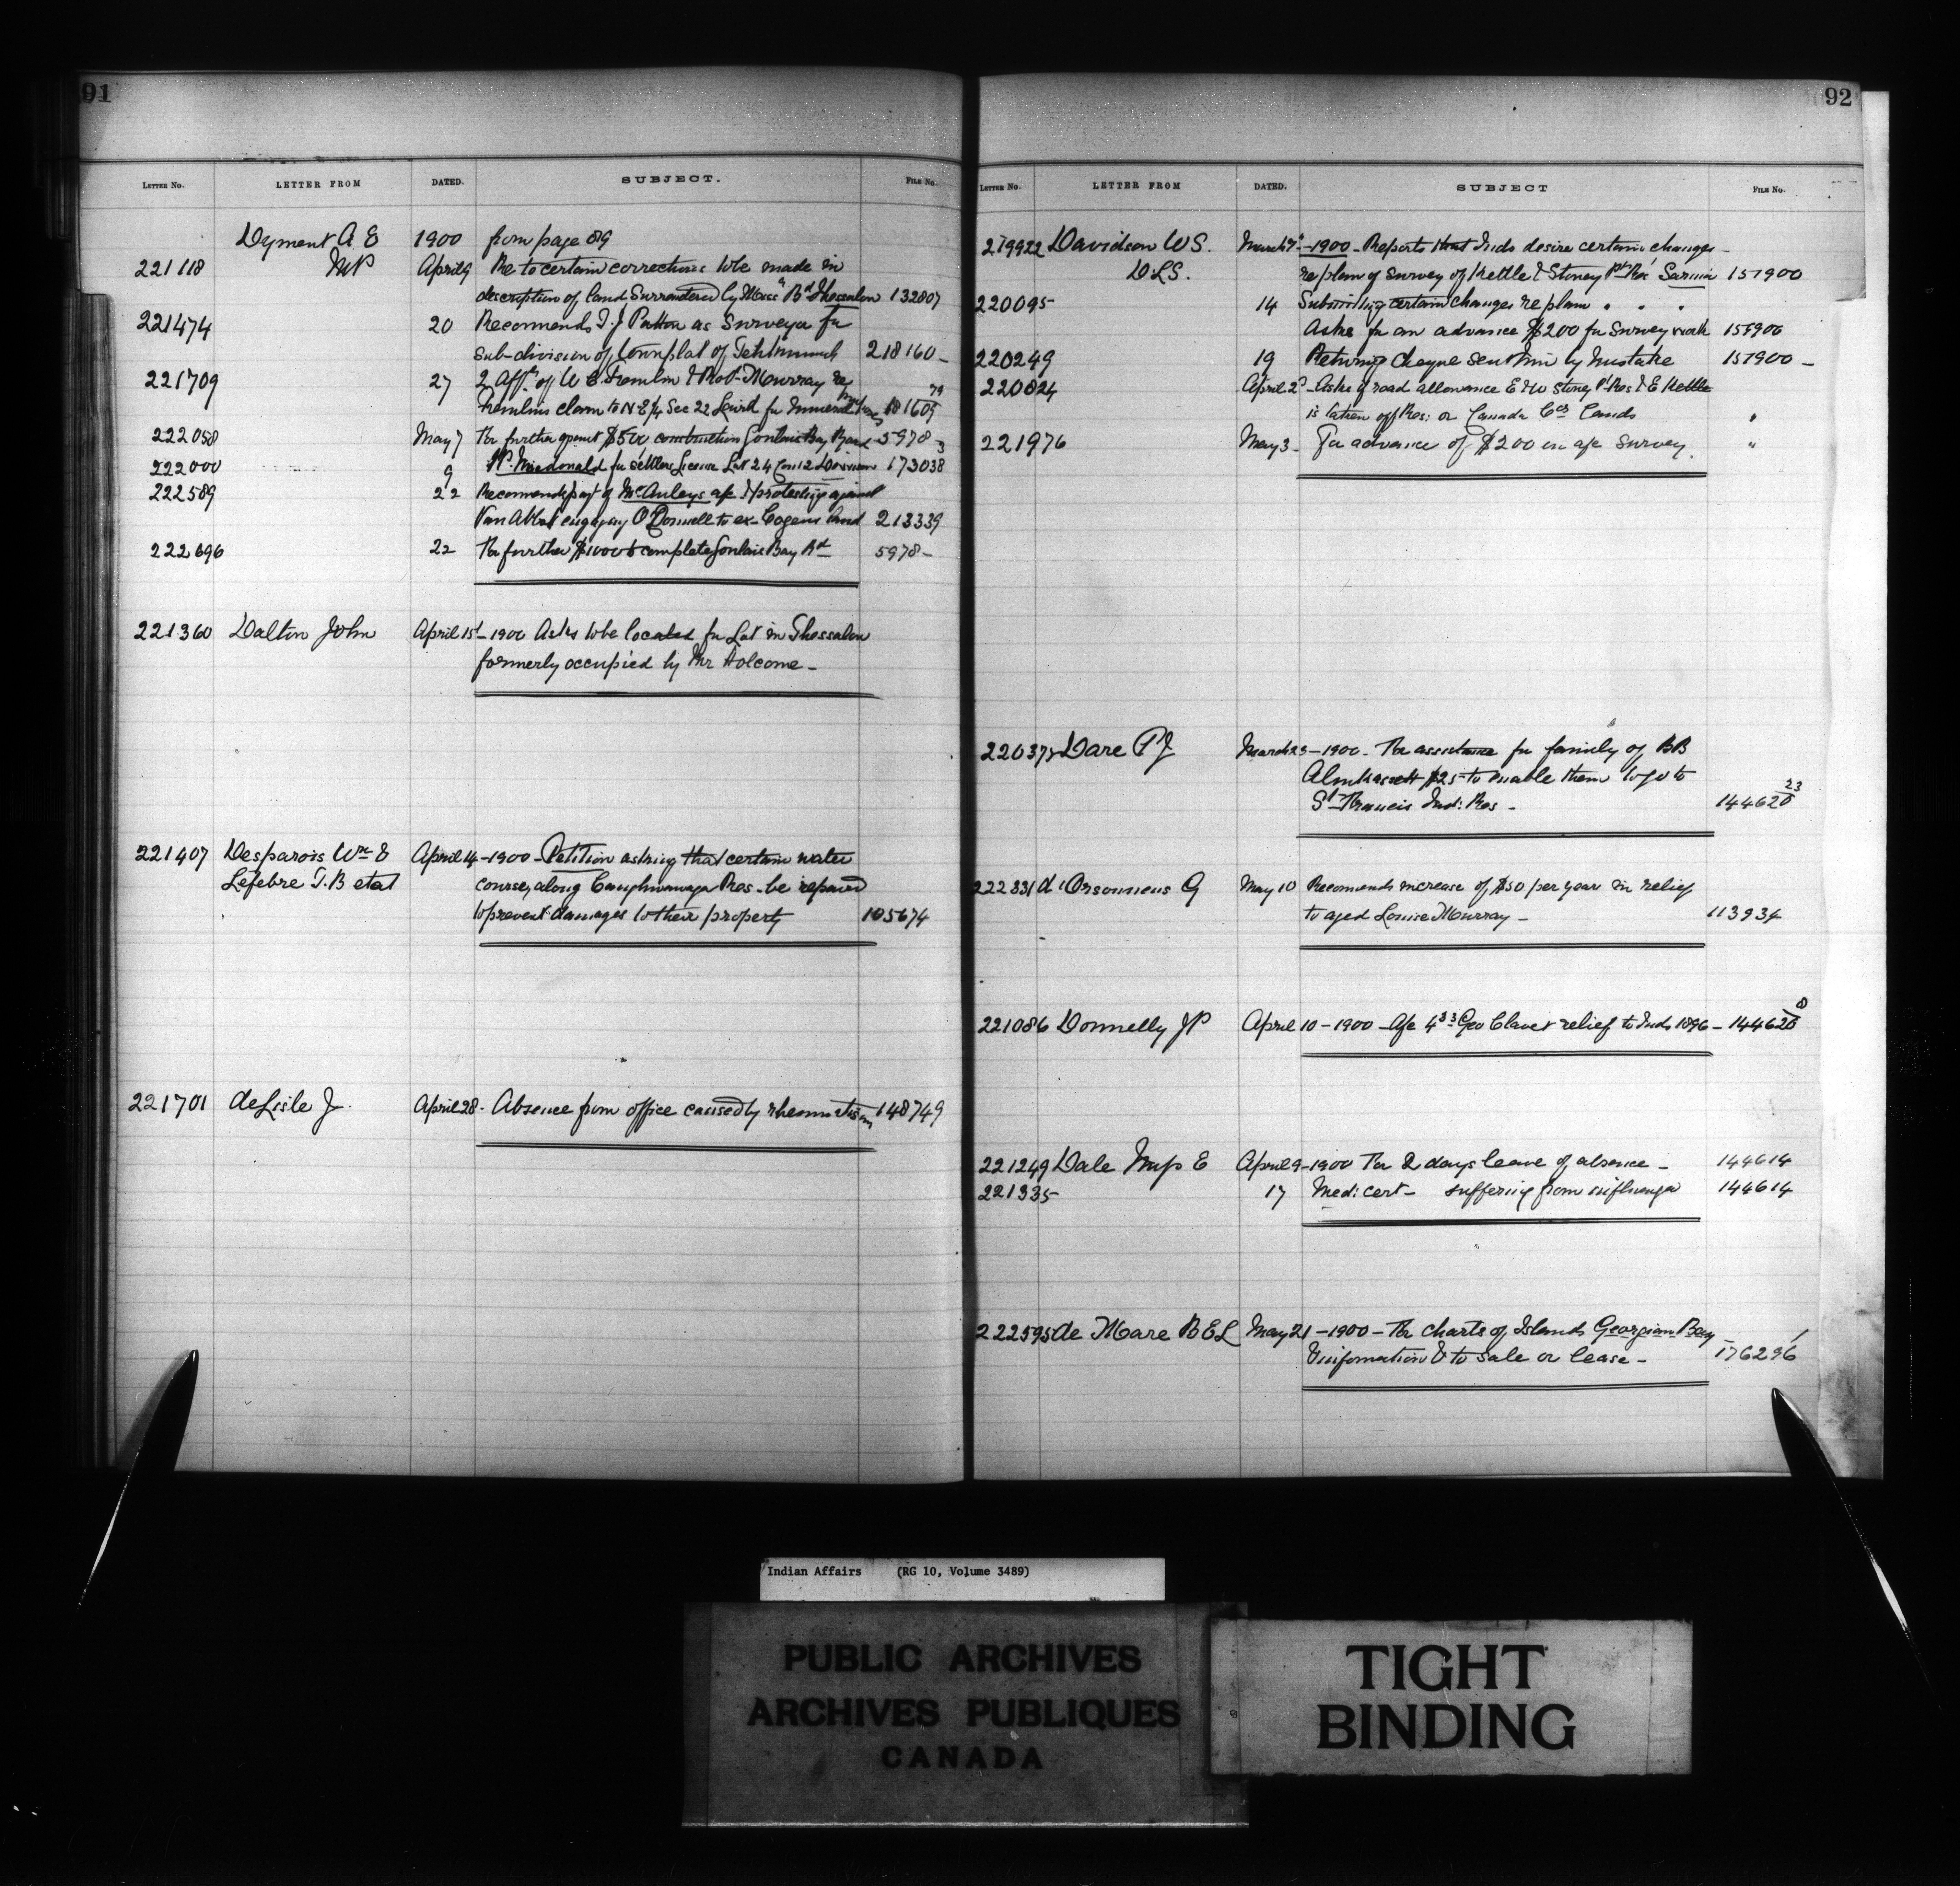 91
LETTER NO. LETTER FROM DATED. SUBJECT. FILE NO.
Dyment A E 1900 from page 89
221118 MP April 9 Re to certain corrections to be made in
description of land Surrendered by Miss Bd Thessalon 132807
221474 20 Recommends T. J Patton as Surveyor for
sub-division of townplat of 218160-
221709 27 2 Affts of W E & Robt Murray re
claim to N E ¼ Sec 22 Laird for mineral 181609 79
222058 May 7 For further grant $500 construction Goulais Bay Road - 5978-3
222000 9 Macdonald for settlers License Lot 24 Con 12 173038
222589 22 Recommends payt of McAuleys a/c & protesting against
Van Abbot engaging O'Donnell to ex- Cogens land 213339
222696 22 For further $1000 to complete Goulais Bay Rd 5978-
221360 Dalton John April 15th-1900 Asks to be located for Lot in Thessalon
formerly occupied by Mr Holcome-
221407 Desparois Wm & April 14-1900-Petition asking that certain water
Lefebre T.B et al course, along Caughnawaga Res- be repaired
to prevent damages to their property 105674
221701 deLisle J. April 28- Absence from office caused by rheumatism 148749
92
LETTER NO. LETTER FROM DATED. SUBJECT FILE NO.
219922 Davidson W S. March 7th-1900- Reports that Inds desire certain changes-
D L S. re plan of survey of Kettle & Stoney Pts Res Sarnia 157900
220095 14 Submitting certain changes re plan " " "
Asks for an advance $200 for Survey work 157900
220249 19 Returning cheque sent him by mistake 157900-
220824 April 2d- Asks if road allowance E & W Stoney Pt Res & E Kettle
is taken off Res: or Canada Cos Lands "
221976 May 3- For advance of $200 on a/c survey. "
220375 Dare P J March 23-1900- For assistance for family of BB
$25- to enable them to go to
St Francis Ind: Res- 144620 23
222331 d'Orsonnens G May 10 Recommends increase of $50 per year in relief
to aged Louise Murray- 113934
221086 Donnelly J P April 10-1900-A/c 4.33 Geo Clavet relief to Inds 1896- 144620 8
221249 Dale E April 9-1900 For 2 days leave of absence- 144614
221335 17 Med: cert- suffering from influenza 144614
222595 de Mare B E L May 21-1900-For charts of Islands Georgian Bay
& information & to sale or lease- 176296
Indian Affairs (RG 10, Volume 3489)
PUBLIC ARCHIVES
ARCHIVES PUBLIQUES
CANADA
TIGHT
BINDING